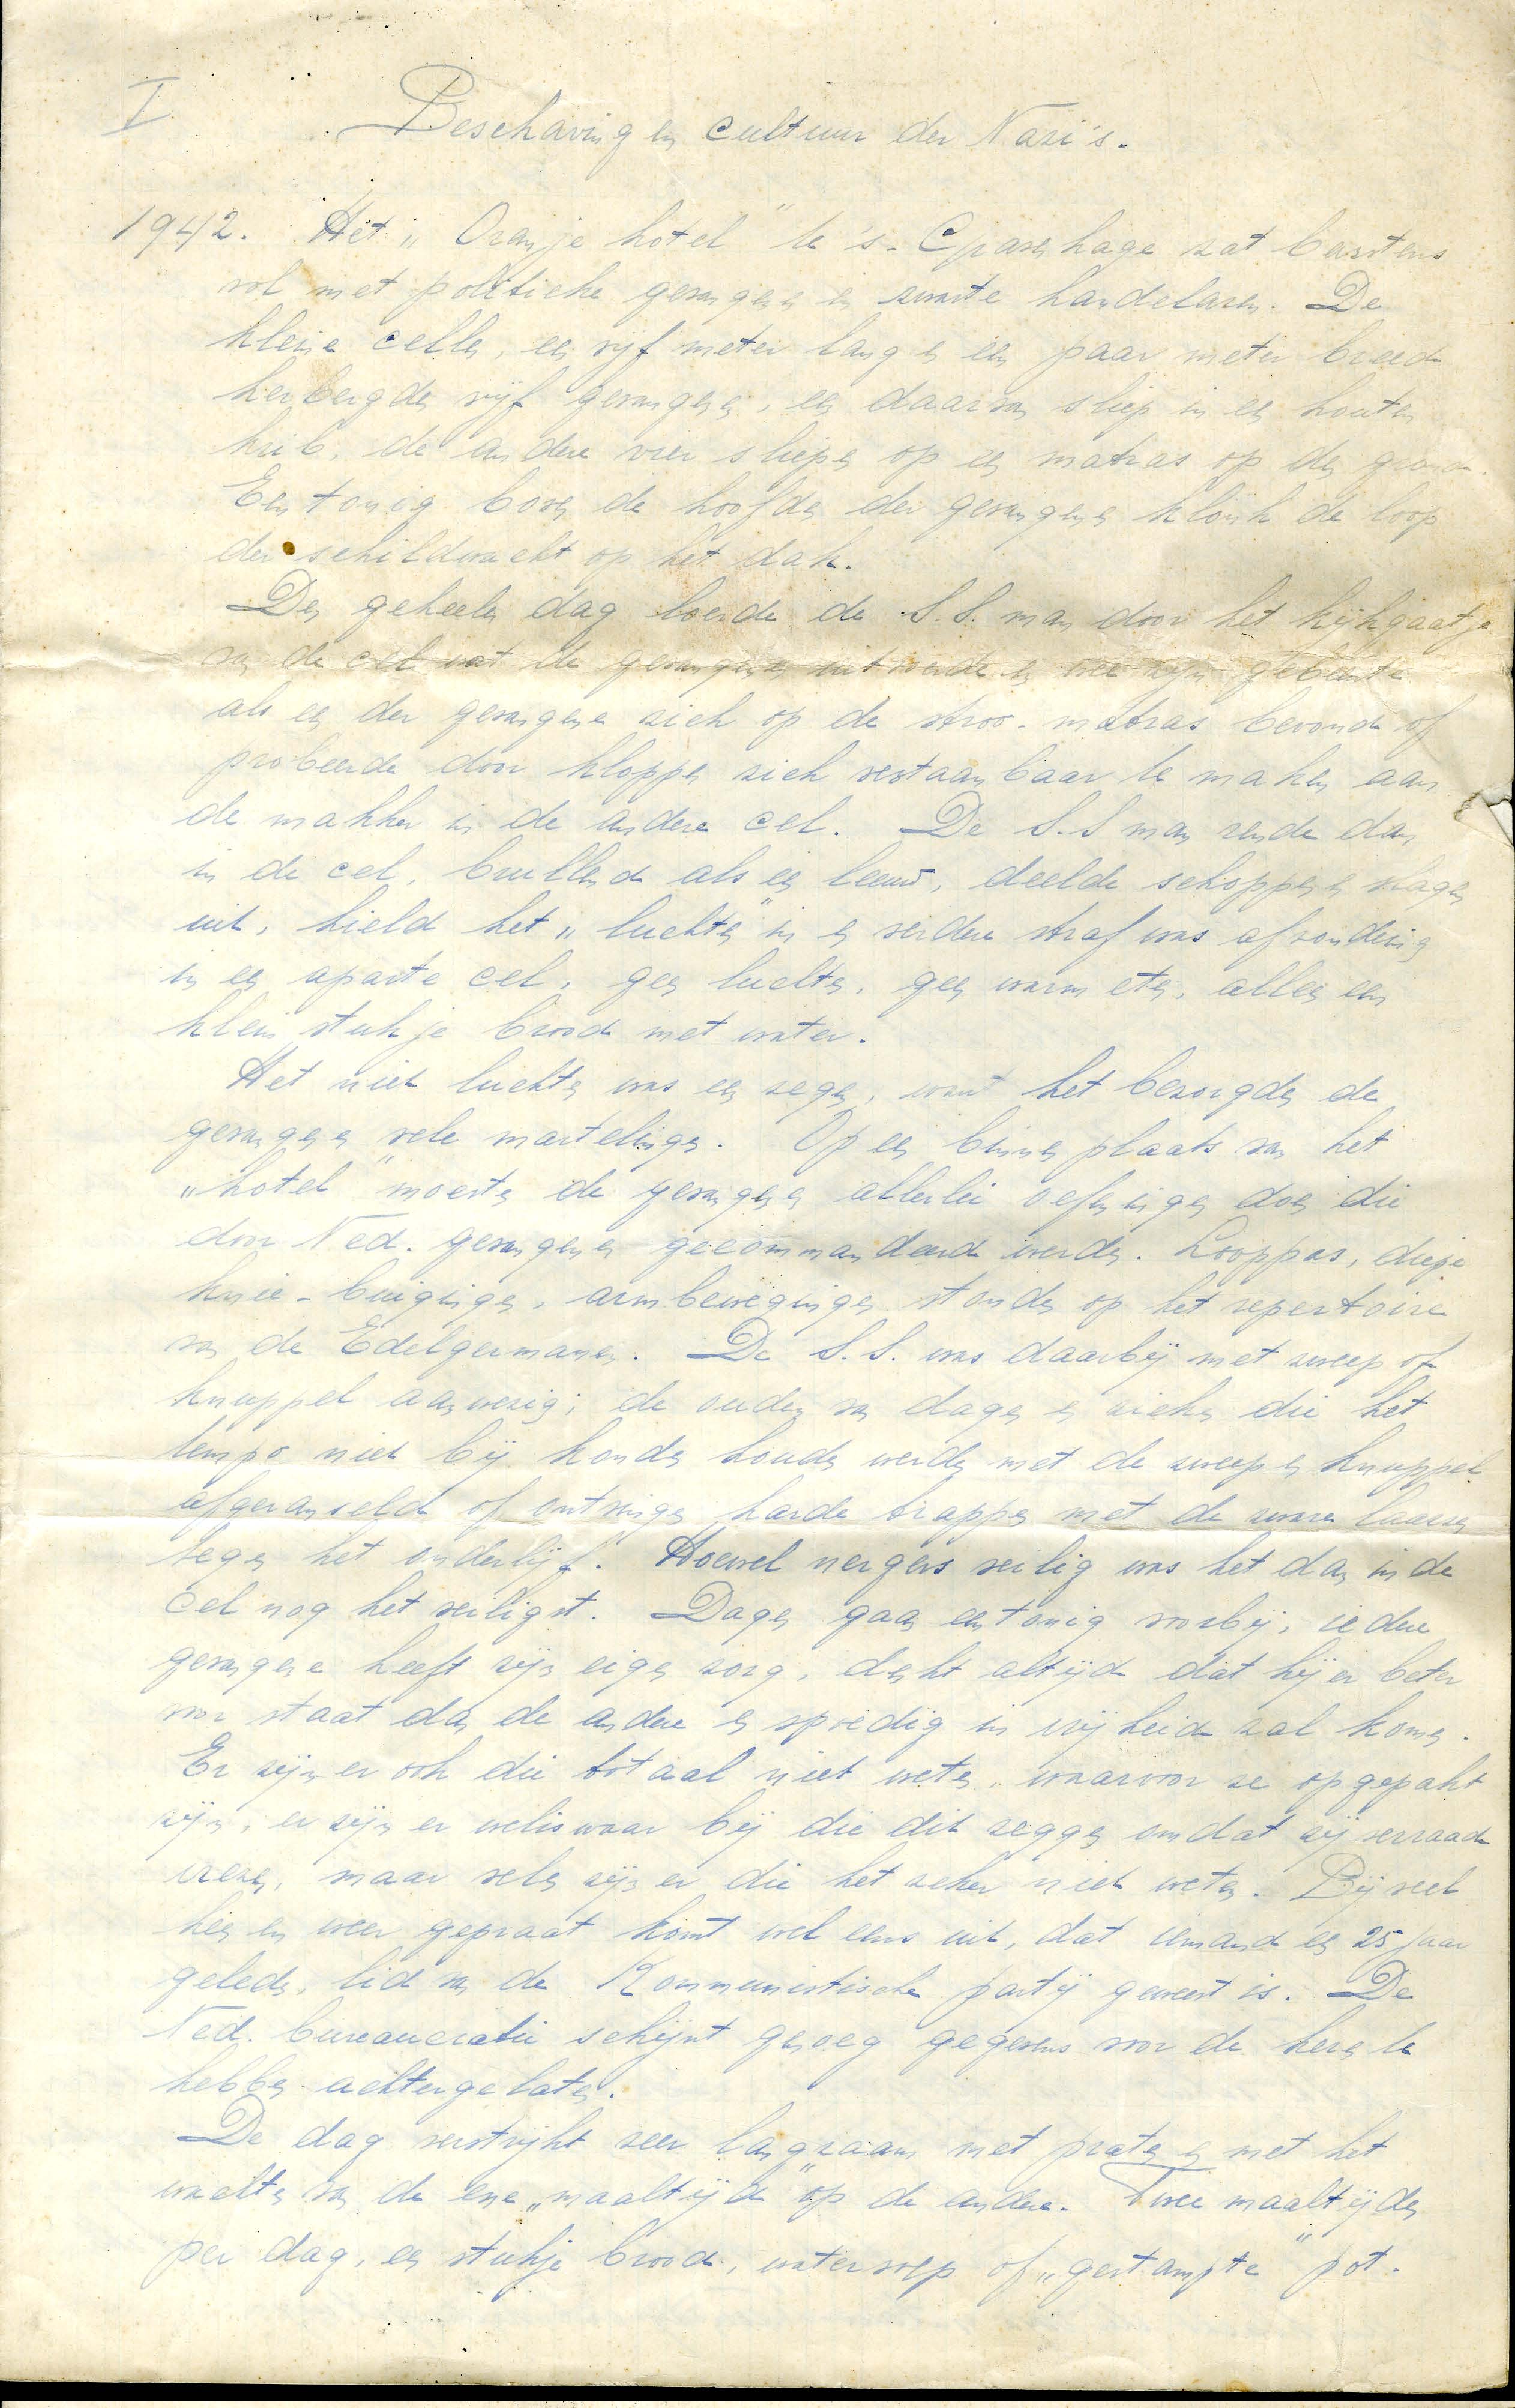 I
Beschaving en cultuur der Nazi's.
1942. Het „Oranje hotel" te 's-Gravenhage zat barstens
vol met politieke gevangenen en zwarte handelaren. De
kleine cellen, een vijf meter lang en een paar meter breed
herbergden vijf gevangenen, een daarvan sliep in een houten
krib, de andere vier sliepen op een matras op den grond.
Eentonig boven de hoofden der gevangenen klonk de loop
der schildwacht op het dak.
Den geheelen dag loerde de S.S. man door het kijkgaatje
van de cel wat de gevangenen uitvoerde en wee zijn gebeente
als een der gevangene zich op de stroo-matras bevond of
probeerde door kloppen zich verstaanbaar te maken aan
de makker in de andere cel. De S.S man rende dan
in de cel, brullend als een leeuw, deelde schoppen en slagen
uit, hield het „luchten" in en verdere straf was afzondering
in een aparte cel, geen luchten, geen warm eten, alleen een
klein stukje brood met water.
Het niet luchten was een zegen, want het bezorgden de
gevangenen vele martelingen. Op een binnenplaats van het
„hotel" moesten de gevangenen allerlei oefeningen doen die
door Ned. gevangenen gecommandeerd werden. Looppas, diepe
knie-buigingen, armbewegingen stonden op het repertoire
van de Edelgermanen. De S.S. was daarbij met zweep of
knuppel aanwezig; de ouden van dagen en zieken die het
tempo niet bij konden houden werden met de zweep en knuppel
afgeranseld of ontvingen harde trappen met de zware laarzen
tegen het onderlijf. Hoewel nergens veilig was het dan in de
cel nog het veiligst. Dagen gaan eentonig voorbij, iedere
gevangene heeft zijn eigen zorg, denkt altijd dat hij er beter
voor staat dan de andere en spoedig in vrijheid zal komen.
Er zijn er ook die totaal niet weten, waarvoor ze opgepakt
zijn, er zijn er weliswaar bij die dit zeggen omdat zij verraad
vrezen, maar velen zijn er die het zeker niet weten. Bij veel
heen en weer gepraat komt wel eens uit, dat iemand een 25 jaar
geleden, lid van de Kommunistische partij geweest is. De
Ned. bureaucratie schijnt genoeg gegevens voor de heren te
hebben achtergelaten.
De dag verstrijkt zeer langzaam met praten en met het
wachten van de ene „maaltijd" op de andere. Twee maaltijden
per dag, een stukje brood, watersoep of „gestampte" pot.